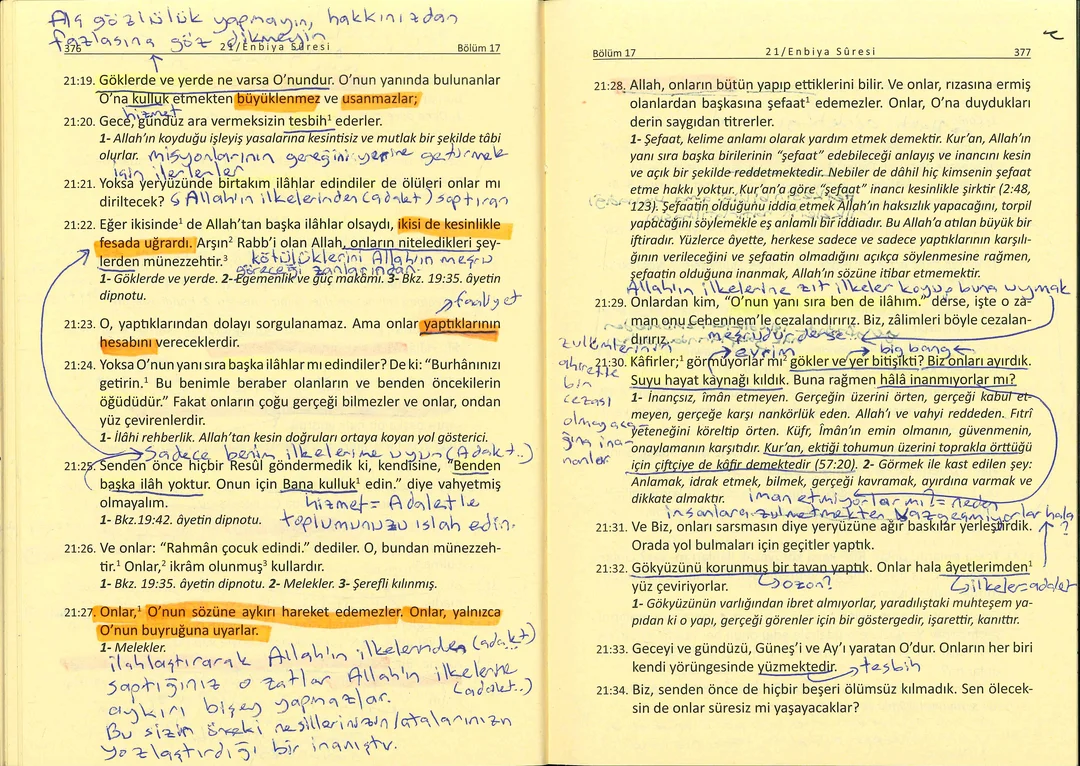 Aç gözlülük yapmayın, hakkınızdan
fazlasına göz dikmeyin
376 21/Enbiya Sûresi Bölüm 17
21:19. Göklerde ve yerde ne varsa O'nundur. O'nun yanında bulunanlar
O'na kulluk etmekten büyüklenmez ve usanmazlar;
hizmet
21:20. Gece, gündüz ara vermeksizin tesbih¹ ederler.
1- Allah'ın koyduğu işleyiş yasalarına kesintisiz ve mutlak bir şekilde tâbi
olurlar. misyonlarının gereğini yerine getirmek
için ilerlerler
21:21. Yoksa yeryüzünde birtakım ilâhlar edindiler de ölüleri onlar mı
diriltecek? Allah'ın ilkelerinden (adalet) saptıran
21:22. Eğer ikisinde¹ de Allah'tan başka ilâhlar olsaydı, ikisi de kesinlikle
fesada uğrardı. Arşın² Rabb'i olan Allah, onların niteledikleri şey-
lerden münezzehtir.³ kötülüklerini Allah'ın meşru
göreceği zanlarından
1- Göklerde ve yerde. 2- Egemenlik ve güç makâmı. 3- Bkz. 19:35. âyetin
dipnotu.
faaliyet
21:23. O, yaptıklarından dolayı sorgulanamaz. Ama onlar yaptıklarının
hesabını vereceklerdir.
21:24. Yoksa O'nun yanı sıra başka ilâhlar mı edindiler? De ki: "Burhânınızı
getirin.¹ Bu benimle beraber olanların ve benden öncekilerin
öğüdüdür." Fakat onların çoğu gerçeği bilmezler ve onlar, ondan
yüz çevirenlerdir.
1- İlâhi rehberlik. Allah'tan kesin doğruları ortaya koyan yol gösterici.
Sadece benim ilkelerime uyun (Adalet..)
21:25. Senden önce hiçbir Resûl göndermedik ki, kendisine, "Benden
başka ilâh yoktur. Onun için Bana kulluk¹ edin." diye vahyetmiş
olmayalım. hizmet = Adaletle
1- Bkz.19:42. âyetin dipnotu. toplumunuzu ıslah edin.
21:26. Ve onlar: "Rahmân çocuk edindi." dediler. O, bundan münezzeh-
tir.¹ Onlar,² ikrâm olunmuş³ kullardır.
1- Bkz. 19:35. âyetin dipnotu. 2- Melekler. 3- Şerefli kılınmış.
21:27. Onlar,¹ O'nun sözüne aykırı hareket edemezler. Onlar, yalnızca
O'nun buyruğuna uyarlar.
1- Melekler.
ilahlaştırarak Allah'ın ilkelerinden (adalet)
saptığınız o zatlar Allah'ın ilkelerine
(adalet..)
aykırı bişey yapmazlar.
Bu sizin önceki nesillerinizin/atalarınızın
yozlaştırdığı bir inanıştır.
Bölüm 17 21/Enbiya Sûresi 377
21:28. Allah, onların bütün yapıp ettiklerini bilir. Ve onlar, rızasına ermiş
olanlardan başkasına şefaat¹ edemezler. Onlar, O'na duydukları
derin saygıdan titrerler.
1- Şefaat, kelime anlamı olarak yardım etmek demektir. Kur'an, Allah'ın
yanı sıra başka birilerinin "şefaat" edebileceği anlayış ve inancını kesin
ve açık bir şekilde reddetmektedir. Nebiler de dâhil hiç kimsenin şefaat
etme hakkı yoktur. Kur'an'a göre "şefaat" inancı kesinlikle şirktir (2:48,
123). Şefaatin olduğunu iddia etmek Allah'ın haksızlık yapacağını, torpil
yapacağını söylemekle eş anlamlı bir iddiadır. Bu Allah'a atılan büyük bir
iftiradır. Yüzlerce âyette, herkese sadece ve sadece yaptıklarının karşılı-
ğının verileceğini ve şefaatin olmadığını açıkça söylenmesine rağmen,
şefaatin olduğuna inanmak, Allah'ın sözüne itibar etmemektir.
Allah'ın ilkelerine zıt ilkeler koyup buna uymak
21:29. Onlardan kim, "O'nun yanı sıra ben de ilâhım." derse, işte o za-
man onu Cehennem'le cezalandırırız. Biz, zâlimleri böyle cezalan-
dırırız. meşrudur derse
zulümlerinin
ahirette
bin
cezası
olmayaca-
ğına ina-
nanlar
evrim big bang
21:30. Kâfirler;¹ görmüyorlar mı² gökler ve yer bitişikti? Biz onları ayırdık.
Suyu hayat kaynağı kıldık. Buna rağmen hâlâ inanmıyorlar mı?
1- İnançsız, îmân etmeyen. Gerçeğin üzerini örten, gerçeği kabul et-
meyen, gerçeğe karşı nankörlük eden. Allah'ı ve vahyi reddeden. Fıtrî
yeteneğini köreltip örten. Küfr, Îmân'ın emin olmanın, güvenmenin,
onaylamanın karşıtıdır. Kur'an, ektiği tohumun üzerini toprakla örttüğü
için çiftçiye de kâfir demektedir (57:20). 2- Görmek ile kast edilen şey:
Anlamak, idrak etmek, bilmek, gerçeği kavramak, ayırdına varmak ve
dikkate almaktır. iman etmiyorlar mı? = neden
insanlara zulmetmekten vazgeçmiyorlar hala
?
21:31. Ve Biz, onları sarsmasın diye yeryüzüne ağır baskılar yerleştirdik.
Orada yol bulmaları için geçitler yaptık.
21:32. Gökyüzünü korunmuş bir tavan yaptık. Onlar hala âyetlerimden¹
yüz çeviriyorlar. ozon? ilkeler=adalet
1- Gökyüzünün varlığından ibret almıyorlar, yaradılıştaki muhteşem ya-
pıdan ki o yapı, gerçeği görenler için bir göstergedir, işarettir, kanıttır.
21:33. Geceyi ve gündüzü, Güneş'i ve Ay'ı yaratan O'dur. Onların her biri
kendi yörüngesinde yüzmektedir. tesbih
21:34. Biz, senden önce de hiçbir beşeri ölümsüz kılmadık. Sen ölecek-
sin de onlar süresiz mi yaşayacaklar?